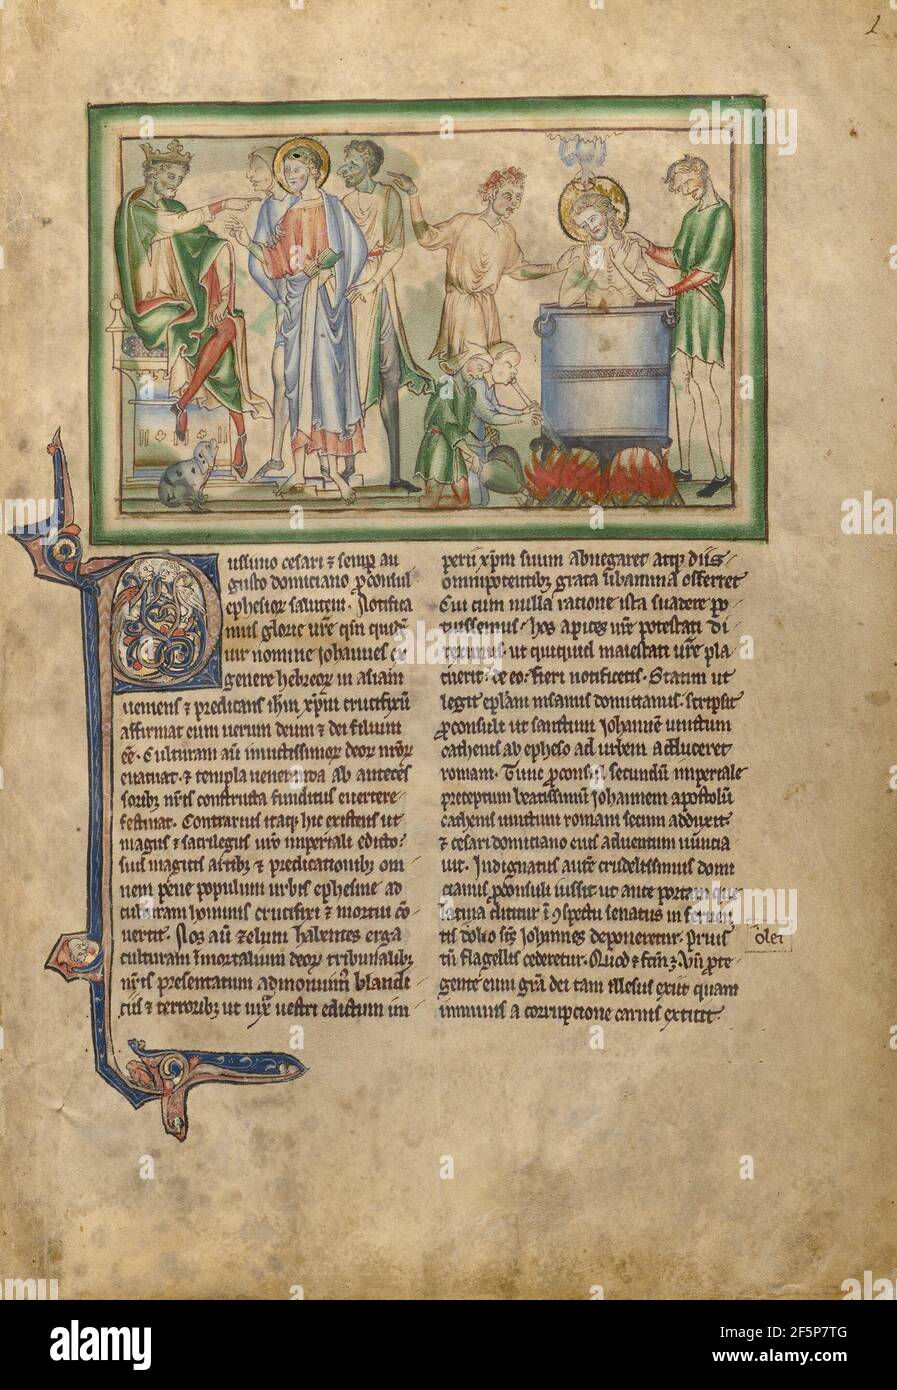 1
Piissimo cesari & semp au
gusto domiciano pconsul
ephesior salutem. Notifica
mus glorie vre qm quidā
vir nomine iohannes ex
genere hebreor in asiam
veniens & predicans ihm xpm crucifixū
affirmat eum verum deum & dei filium
eē. Culturam aū invictissimor deor nror
evacuat. & templa veneranda ab anteces
soribz nris constructa funditus evertere
festinat. Contrarius itaqz hic existens ut
magus & sacrilegus vro imperiali edicto.
suis magicis artibz & predicationibz om
nem pene populum urbis ephesine ad
culturam hominis crucifixi & mortui cō
vertit. Nos aū zelum habentes erga
culturam immortalium deor tribunalibz
nris presentatum admonuim blandi
ciis & terroribz ut iuxa vestri edictum im
perii xpm suum abnegaret atqz diis
omnipotentibz grata libamina offerret
Cui cum nulla ratione ista suadere po
tuissemus. hos apices vre potestati di
reximus. ut quicquid maiestati vre pla
cuerit. de eo fieri notificetis. Statim ut
legit eplam insanus domicianus. scripsit
pconsuli ut sanctum Johannē vinctum
cathenis ab epheso ad urbem adduceret
romam. Tunc pconsul secundū imperiale
preceptum beatissimū Johannem apostolū
cathenis vinctum romam secum adduxit
& cesari domiciano eius adventum nuncia
vit. Indignatus autē crudelissimus domi
cianus pconsuli iussit ut ante portam que
latina dicitur ī conspectu senatus in ferven
tis dolio scs Johannes deponeretur. prius
olei
tn flagellis cederetur. Quod & fcm ē. Un prote
gente eum gra dei tam illesus exiit quam
inmunis a corrupcione carnis extitit.
alamy
Image ID: 2F5P7TG
www.alamy.com